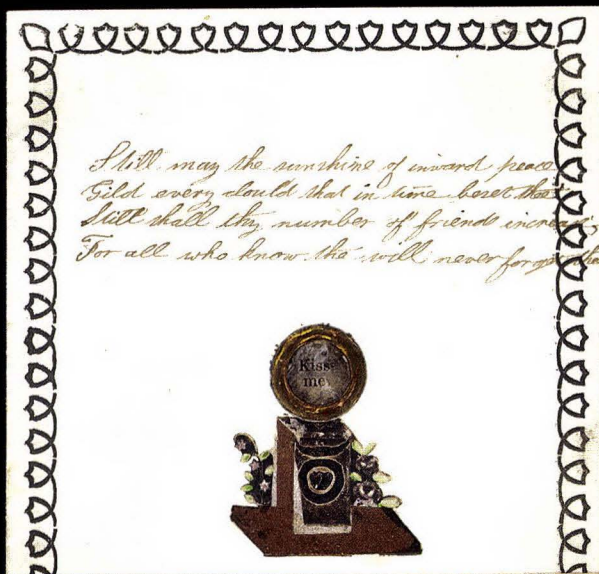 Still may the sunshine of inward peace
Gild every clould that in time beset thee
Still shall thy number of friends increase,
For all who know the will never forget thee
Kiss
me